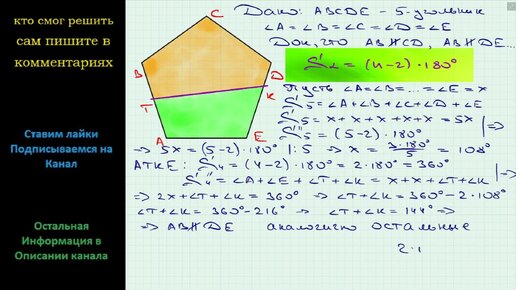 кто смог решить
сам пишите в
комментариях
Ставим лайки
Подписываемся на
Канал
Остальная
Информация в
Описании канала
C
B
D
T
K
A
E
Дано: ABCDE - 5-угольник
∠A = ∠B = ∠C = ∠D = ∠E
Док, что AB∦CD, AB∦DE...
S∠ = (n-2)·180°
Пусть ∠A=∠B=...=∠E = x
S'5 = ∠A+∠B+∠C+∠D+∠E
S'5 = x+x+x+x+x = 5x
S''5 = (5-2)·180° |⇒
⇒ 5x = (5-2)·180° |:5 ⇒ x = 3·180°/5 = 108°
ATKE: S'4 = (4-2)·180° = 2·180° = 360°
S''4 = ∠A+∠E+∠T+∠K = x+x+∠T+∠K |⇒
⇒ 2x+∠T+∠K = 360° ⇒ ∠T+∠K = 360°-2·108°
∠T+∠K = 360°-216° ⇒ ∠T+∠K = 144° ⇒
⇒ AB∦DE аналогично остальные